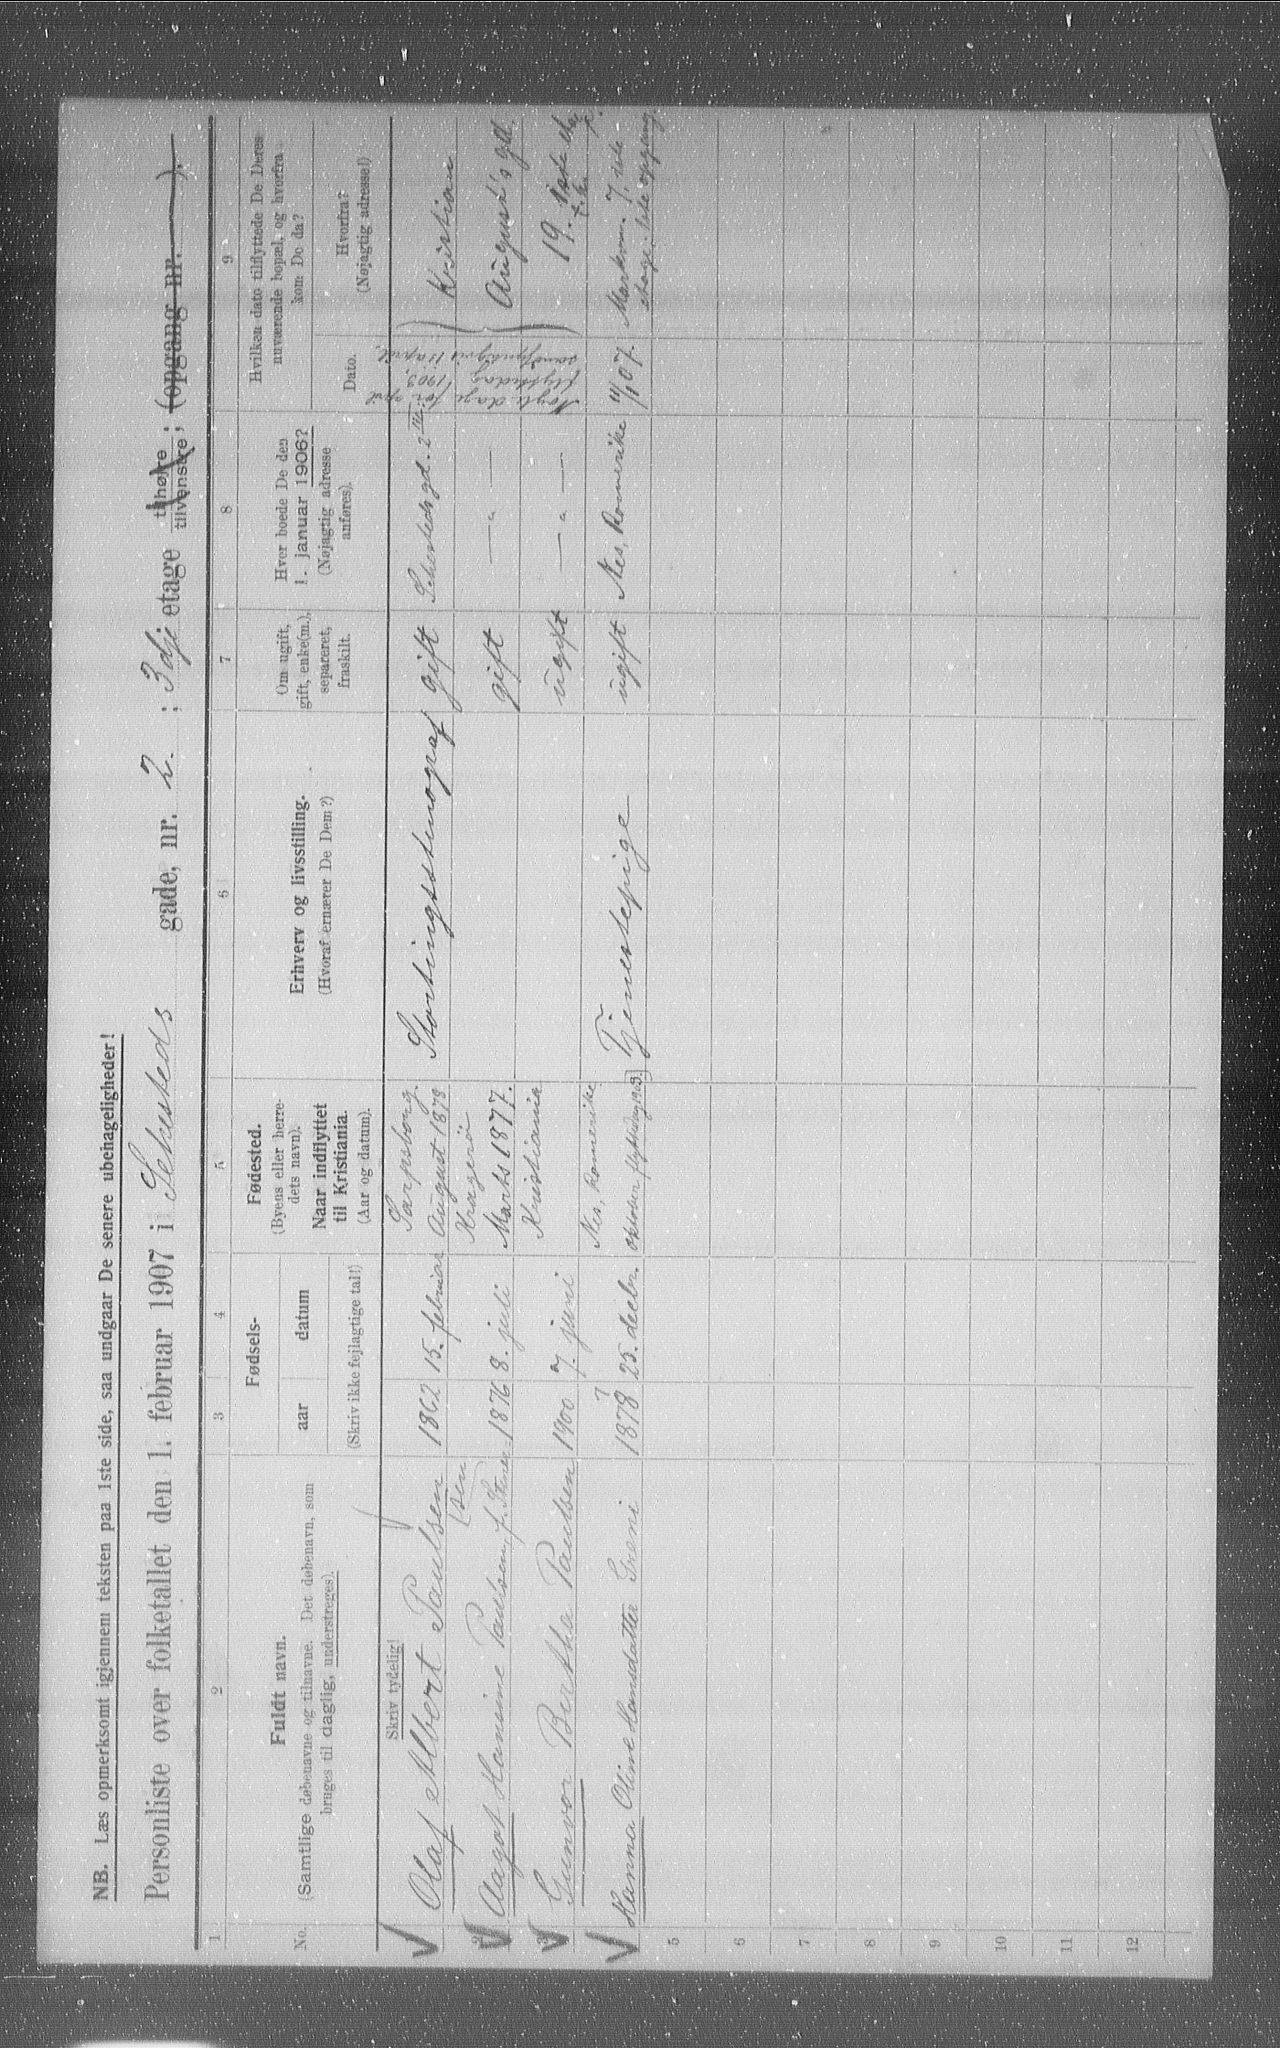 NB. Læs opmerksomt igjennem teksten paa 1ste side, saa undgaar De senere ubehageligheder!
Personliste over folketallet den 1. februar 1907 i Sehesteds gade, nr. 2. ; 3dje etage tilhøire / tilvenstre ; (opgang nr. ).
1 2 3 4 5 6 7 8 9
No.
Fuldt navn.
(Samtlige døbenavne og tilnavne. Det døbenavn, som
bruges til daglig, understreges).
Skriv tydelig!
Fødsels-
aar datum
(Skriv ikke fejlagtige tal!)
Fødested.
(Byens eller herre-
dets navn).
Naar indflyttet
til Kristiania.
(Aar og datum).
Erhverv og livsstilling.
(Hvoraf ernærer De Dem?)
Om ugift,
gift, enke(m.),
separeret,
fraskilt.
Hvor boede De den
1. januar 1906?
(Nøjagtig adresse
anføres).
Hvilken dato tilflyttede De Deres
nuværende bopæl, og hvorfra
kom De da?
Dato.
Hvorfra?
(Nøjagtig adresse!)
Olaf Albert Paulsen 1862 15. februar Sarpsborg. August 1878 Stortingsstenograf gift Sehestedsgd. 2 III Kristian
2 Aagot Hanine Paulsen, f. Steen-(sen 1876 8. juli Kragerø Marts 1877. gift — " — August's gd.
3 Gunvor Bertha Paulsen 1900 7. juni Kristiania ugift — " — 19. 1ste
Nogle dage før april
flyttedag 1903,
11 april,
Hanna Oline Hansdatter Greni 1878 25. decbr. Nes, Romerike oktober flyttedag 1903. Tjenestepige ugift Nes, Romerike 11/1 07. Markvn. 7, 1ste
etage. 1ste opgang
5
6
7
8
9
10
11
12